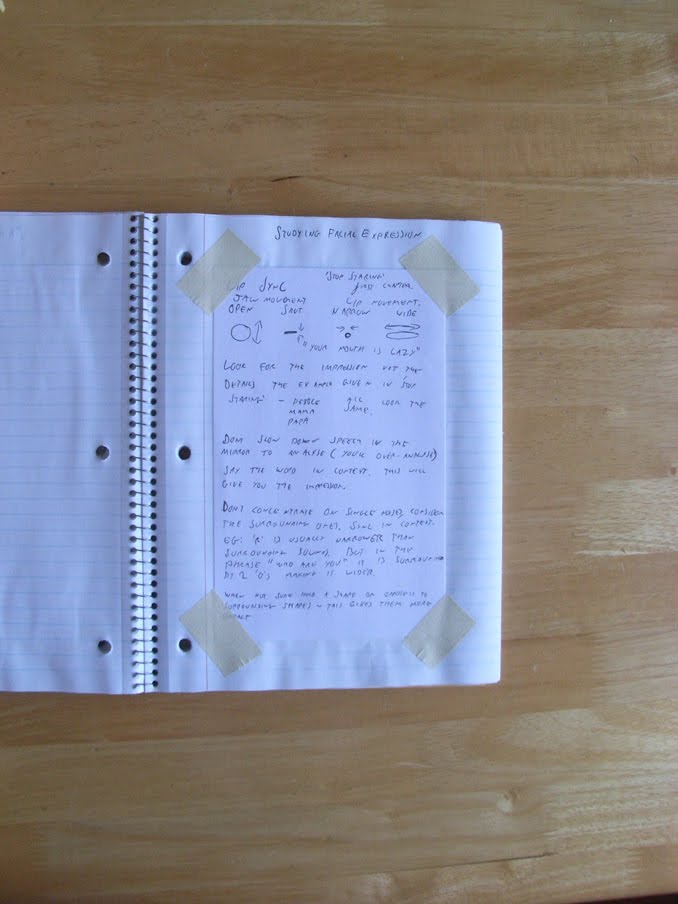 STUDYING FACIAL EXPRESSION
LIP SYNC 'STOP STARING'
JAW MOVEMENT LIP MOVEMENT.
OPEN SHUT NARROW WIDE
"YOUR MOUTH IS LAZY"
LOOK FOR THE IMPRESSION NOT THE
DETAILS THE EXAMPLE GIVEN IN STOP
STARING' - PEBBLE ALL LOOK THE
MAMA SAME.
PAPA
DONT SLOW DOWN SPEECH IN THE
MIRROR TO ANALYSE (YOU'LL OVER-ANALYSE)
SAY THE WORD IN CONTEXT. THIS WILL
GIVE YOU THE IMPRESSION.
DON'T CONCENTRATE ON SINGLE POSES, CONSIDER
THE SURROUNDING ONES, SYNC IN CONTEXT.
EG: 'R' IS USUALLY NARROWER THAN
SURROUNDING SOUNDS. BUT IN THE
PHRASE "WHO ARE YOU" IT IS SURROUNDED
BY 2 'O'S MAKING IT WIDER.
WHEN NOT SURE HOLD A SHAPE OR OPPOSITE TO
SURROUNDING SHAPES - THIS GIVES THEM MORE
IMPACT